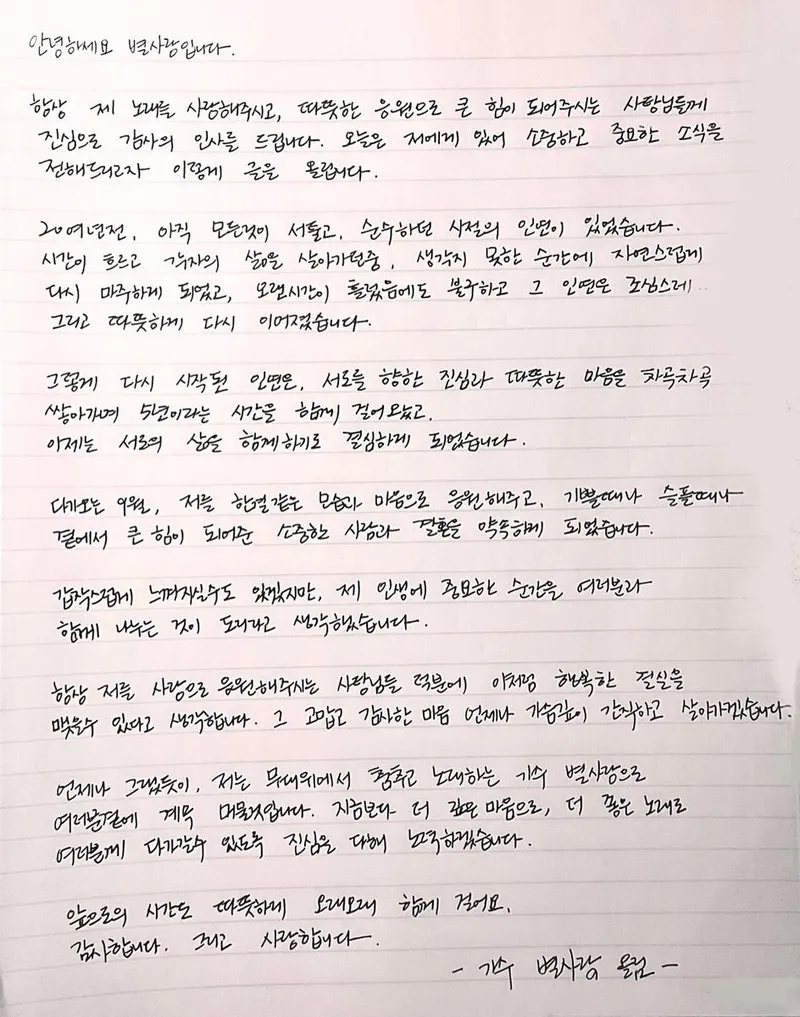 안녕하세요 별사랑입니다.
항상 제 노래를 사랑해주시고, 따뜻한 응원으로 큰 힘이 되어주시는 사랑님들께
진심으로 감사의 인사를 드립니다. 오늘은 저에게 있어 소중하고 중요한 소식을
전해드리고자 이렇게 글을 올립니다.
20여년전, 아직 모든것이 서툴고, 순수하던 시절의 인연이 있었습니다.
시간이 흐르고 각자의 삶을 살아가던중, 생각지 못한 순간에 자연스럽게
다시 마주하게 되었고, 오랜시간이 흘렀음에도 불구하고 그 인연은 조심스레..
그리고 따뜻하게 다시 이어졌습니다.
그렇게 다시 시작된 인연은, 서로를 향한 진심과 따뜻한 마음을 차곡차곡
쌓아가며 5년이라는 시간을 함께 걸어왔고,
이제는 서로의 삶을 함께하기로 결심하게 되었습니다.
다가오는 9월, 저를 한결같은 모습과 마음으로 응원해주고, 기쁠때나 슬플때나
곁에서 큰 힘이 되어준 소중한 사람과 결혼을 약속하게 되었습니다.
갑작스럽게 느껴지실수도 있겠지만, 제 인생에 중요한 순간을 여러분과
함께 나누는 것이 도리라고 생각했습니다.
항상 저를 사랑으로 응원해주시는 사랑님들 덕분에 이처럼 행복한 결실을
맺을수 있다고 생각합니다. 그 고맙고 감사한 마음 언제나 가슴깊이 간직하고 살아가겠습니다.
언제나 그랬듯이, 저는 무대위에서 춤추고 노래하는 가수 별사랑으로
여러분곁에 계속 머물것입니다. 지금보다 더 깊은 마음으로, 더 좋은 노래로
여러분께 다가갈수 있도록 진심을 다해 노력하겠습니다.
앞으로의 시간도 따뜻하게 오래오래 함께 걸어요.
감사합니다. 그리고 사랑합니다.
- 가수 별사랑 올림 -